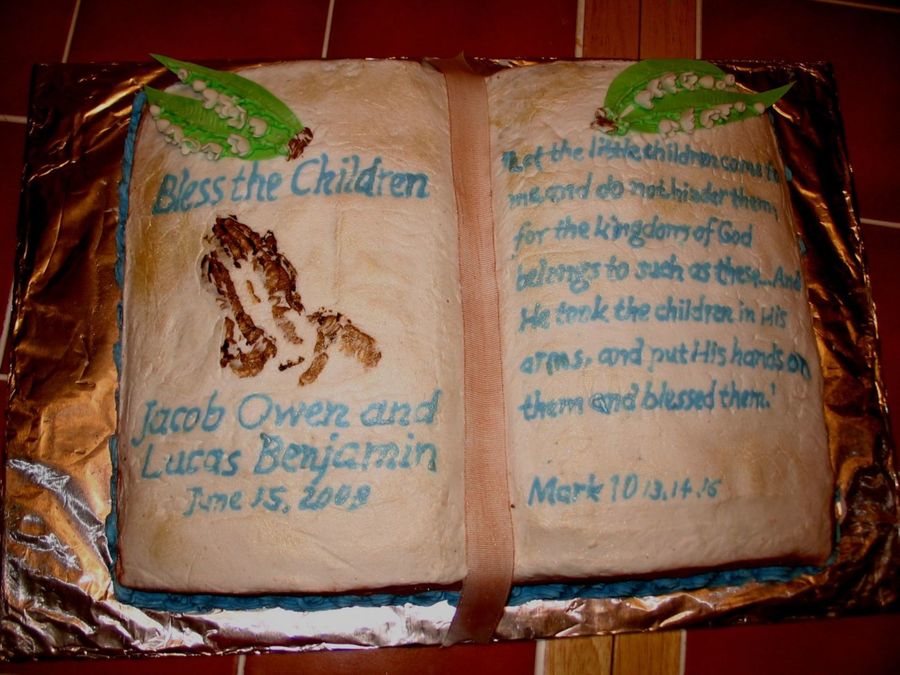 Bless the Children
Jacob Owen and
Lucas Benjamin
June 15, 2008
"Let the little children come to
me, and do not hinder them,
for the kingdom of God
belongs to such as these...And
He took the children in His
arms, and put His hands on
them and blessed them.'
Mark 10 13.14.16